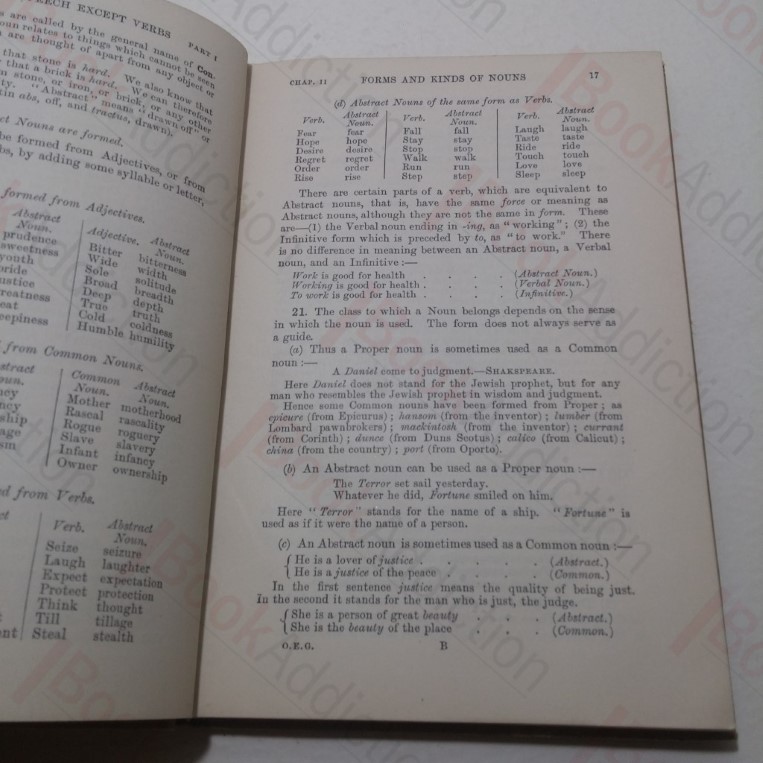 SPEECH EXCEPT VERBS PART I
are called by the general name of Con-
noun relates to things which cannot be seen
are thought of apart from any object or
that stone is hard. We also know that
that a brick is hard. We can therefore
stone, or iron, or brick, or any other
"Abstract" means "drawn off" or
abs, off, and tractus, drawn).
Nouns are formed.
be formed from Adjectives, or from
by adding some syllable or letter,
formed from Adjectives.
Abstract Noun. Adjective. Abstract Noun.
prudence Bitter bitterness
sweetness Wide width
youth Sole solitude
pride Broad breadth
justice Deep depth
greatness True truth
Cold coldness
Humble humility
from Common Nouns.
Common Noun. Abstract Noun.
Mother motherhood
Rascal rascality
Rogue roguery
Slave slavery
Infant infancy
Owner ownership
from Verbs.
Verb. Abstract Noun.
Seize seizure
Laugh laughter
Expect expectation
Protect protection
Think thought
Till tillage
Steal stealth
CHAP. II FORMS AND KINDS OF NOUNS 17
(d) Abstract Nouns of the same form as Verbs.
Verb. Abstract Noun. Verb. Abstract Noun. Verb. Abstract Noun.
Fear fear Fall fall Laugh laugh
Hope hope Stay stay Taste taste
Desire desire Stop stop Ride ride
Regret regret Walk walk Touch touch
Order order Run run Love love
Rise rise Step step Sleep sleep
There are certain parts of a verb, which are equivalent to
Abstract nouns, that is, have the same force or meaning as
Abstract nouns, although they are not the same in form. These
are—(1) the Verbal noun ending in -ing, as "working"; (2) the
Infinitive form which is preceded by to, as "to work." There
is no difference in meaning between an Abstract noun, a Verbal
noun, and an Infinitive:—
Work is good for health . . . . (Abstract Noun.)
Working is good for health . . . . (Verbal Noun.)
To work is good for health . . . . (Infinitive.)
21. The class to which a Noun belongs depends on the sense
in which the noun is used. The form does not always serve as
a guide.
(a) Thus a Proper noun is sometimes used as a Common
noun:—
A Daniel come to judgment.—SHAKSPEARE.
Here Daniel does not stand for the Jewish prophet, but for any
man who resembles the Jewish prophet in wisdom and judgment.
Hence some Common nouns have been formed from Proper; as
epicure (from Epicurus); hansom (from the inventor); lumber (from
Lombard pawnbrokers); mackintosh (from the inventor); currant
(from Corinth); dunce (from Duns Scotus); calico (from Calicut);
china (from the country); port (from Oporto).
(b) An Abstract noun can be used as a Proper noun:—
The Terror set sail yesterday.
Whatever he did, Fortune smiled on him.
Here "Terror" stands for the name of a ship. "Fortune" is
used as if it were the name of a person.
(c) An Abstract noun is sometimes used as a Common noun:—
He is a lover of justice . . . . . (Abstract.)
He is a justice of the peace . . . . (Common.)
In the first sentence justice means the quality of being just.
In the second it stands for the man who is just, the judge.
She is a person of great beauty . . . (Abstract.)
She is the beauty of the place . . . (Common.)
O.E.G. B
BookAddiction